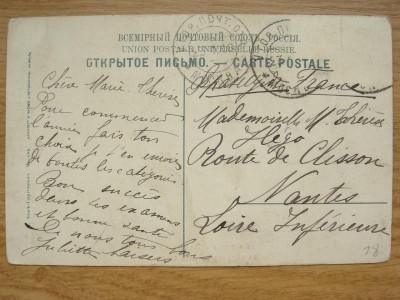 ВСЕМІРНЫЙ ПОЧТОВЫЙ СОЮЗЪ. РОССІЯ.
UNION POSTALE UNIVERSELLE. RUSSIE.
ОТКРЫТОЕ ПИСЬМО. — CARTE POSTALE
Chère Marie Thérèse
Pour commencer
l'année fais ton
choix je t'en envoie
de toutes les catégories
Bon succès
dans les examens
et bonne santé
à vous tous bons
baisers Juliette
France
Mademoiselle M. Thérèse
Hégo
Route de Clisson
Nantes
Loire Inférieure
18